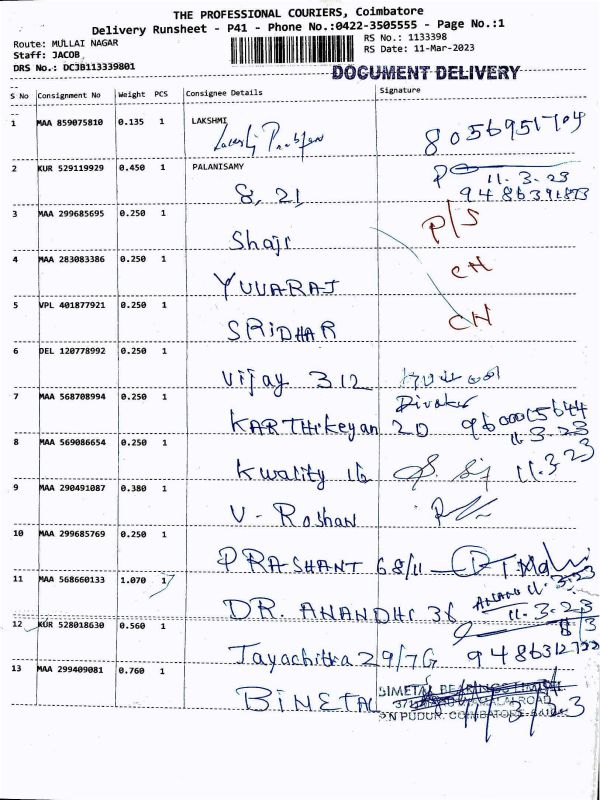 THE PROFESSIONAL COURIERS, Coimbatore
Delivery Runsheet - P41 - Phone No.:0422-3505555 - Page No.:1
Route: MULLAI NAGAR
RS No.: 1133398
Staff: JACOB
RS Date: 11-Mar-2023
DRS No.: DCJB113339801
DOCUMENT DELIVERY
S No Consignment No Weight PCS Consignee Details Signature
1 MAA 859075810 0.135 1 LAKSHMI
8056951704
2 KUR 529119929 0.450 1 PALANISAMY
8, 21
11.3.23
9486391873
3 MAA 299685695 0.250 1
Shaji P/S
4 MAA 283083386 0.250 1
YUVARAJ CH
5 VPL 401877921 0.250 1
SRIDHAR CH
6 DEL 120778992 0.250 1
Vijay 312
7 MAA 568708994 0.250 1
Divakar
KARTHikeyan 20 9600015644
11.3.23
8 MAA 569086654 0.250 1
Kwality 16 11.3.23
9 MAA 290491087 0.380 1
V - Roshan
10 MAA 299685769 0.250 1
PRASHANT 68/11
11 MAA 568660133 1.070 1
DR. ANANDHI 36 ANAND 11.3.23
11.3.23
12 KUR 528018630 0.560 1
Jayachitra 29/7G
13 MAA 299409081 0.760 1
BIMETAL
BIMETAL BEARINGS LIMITED